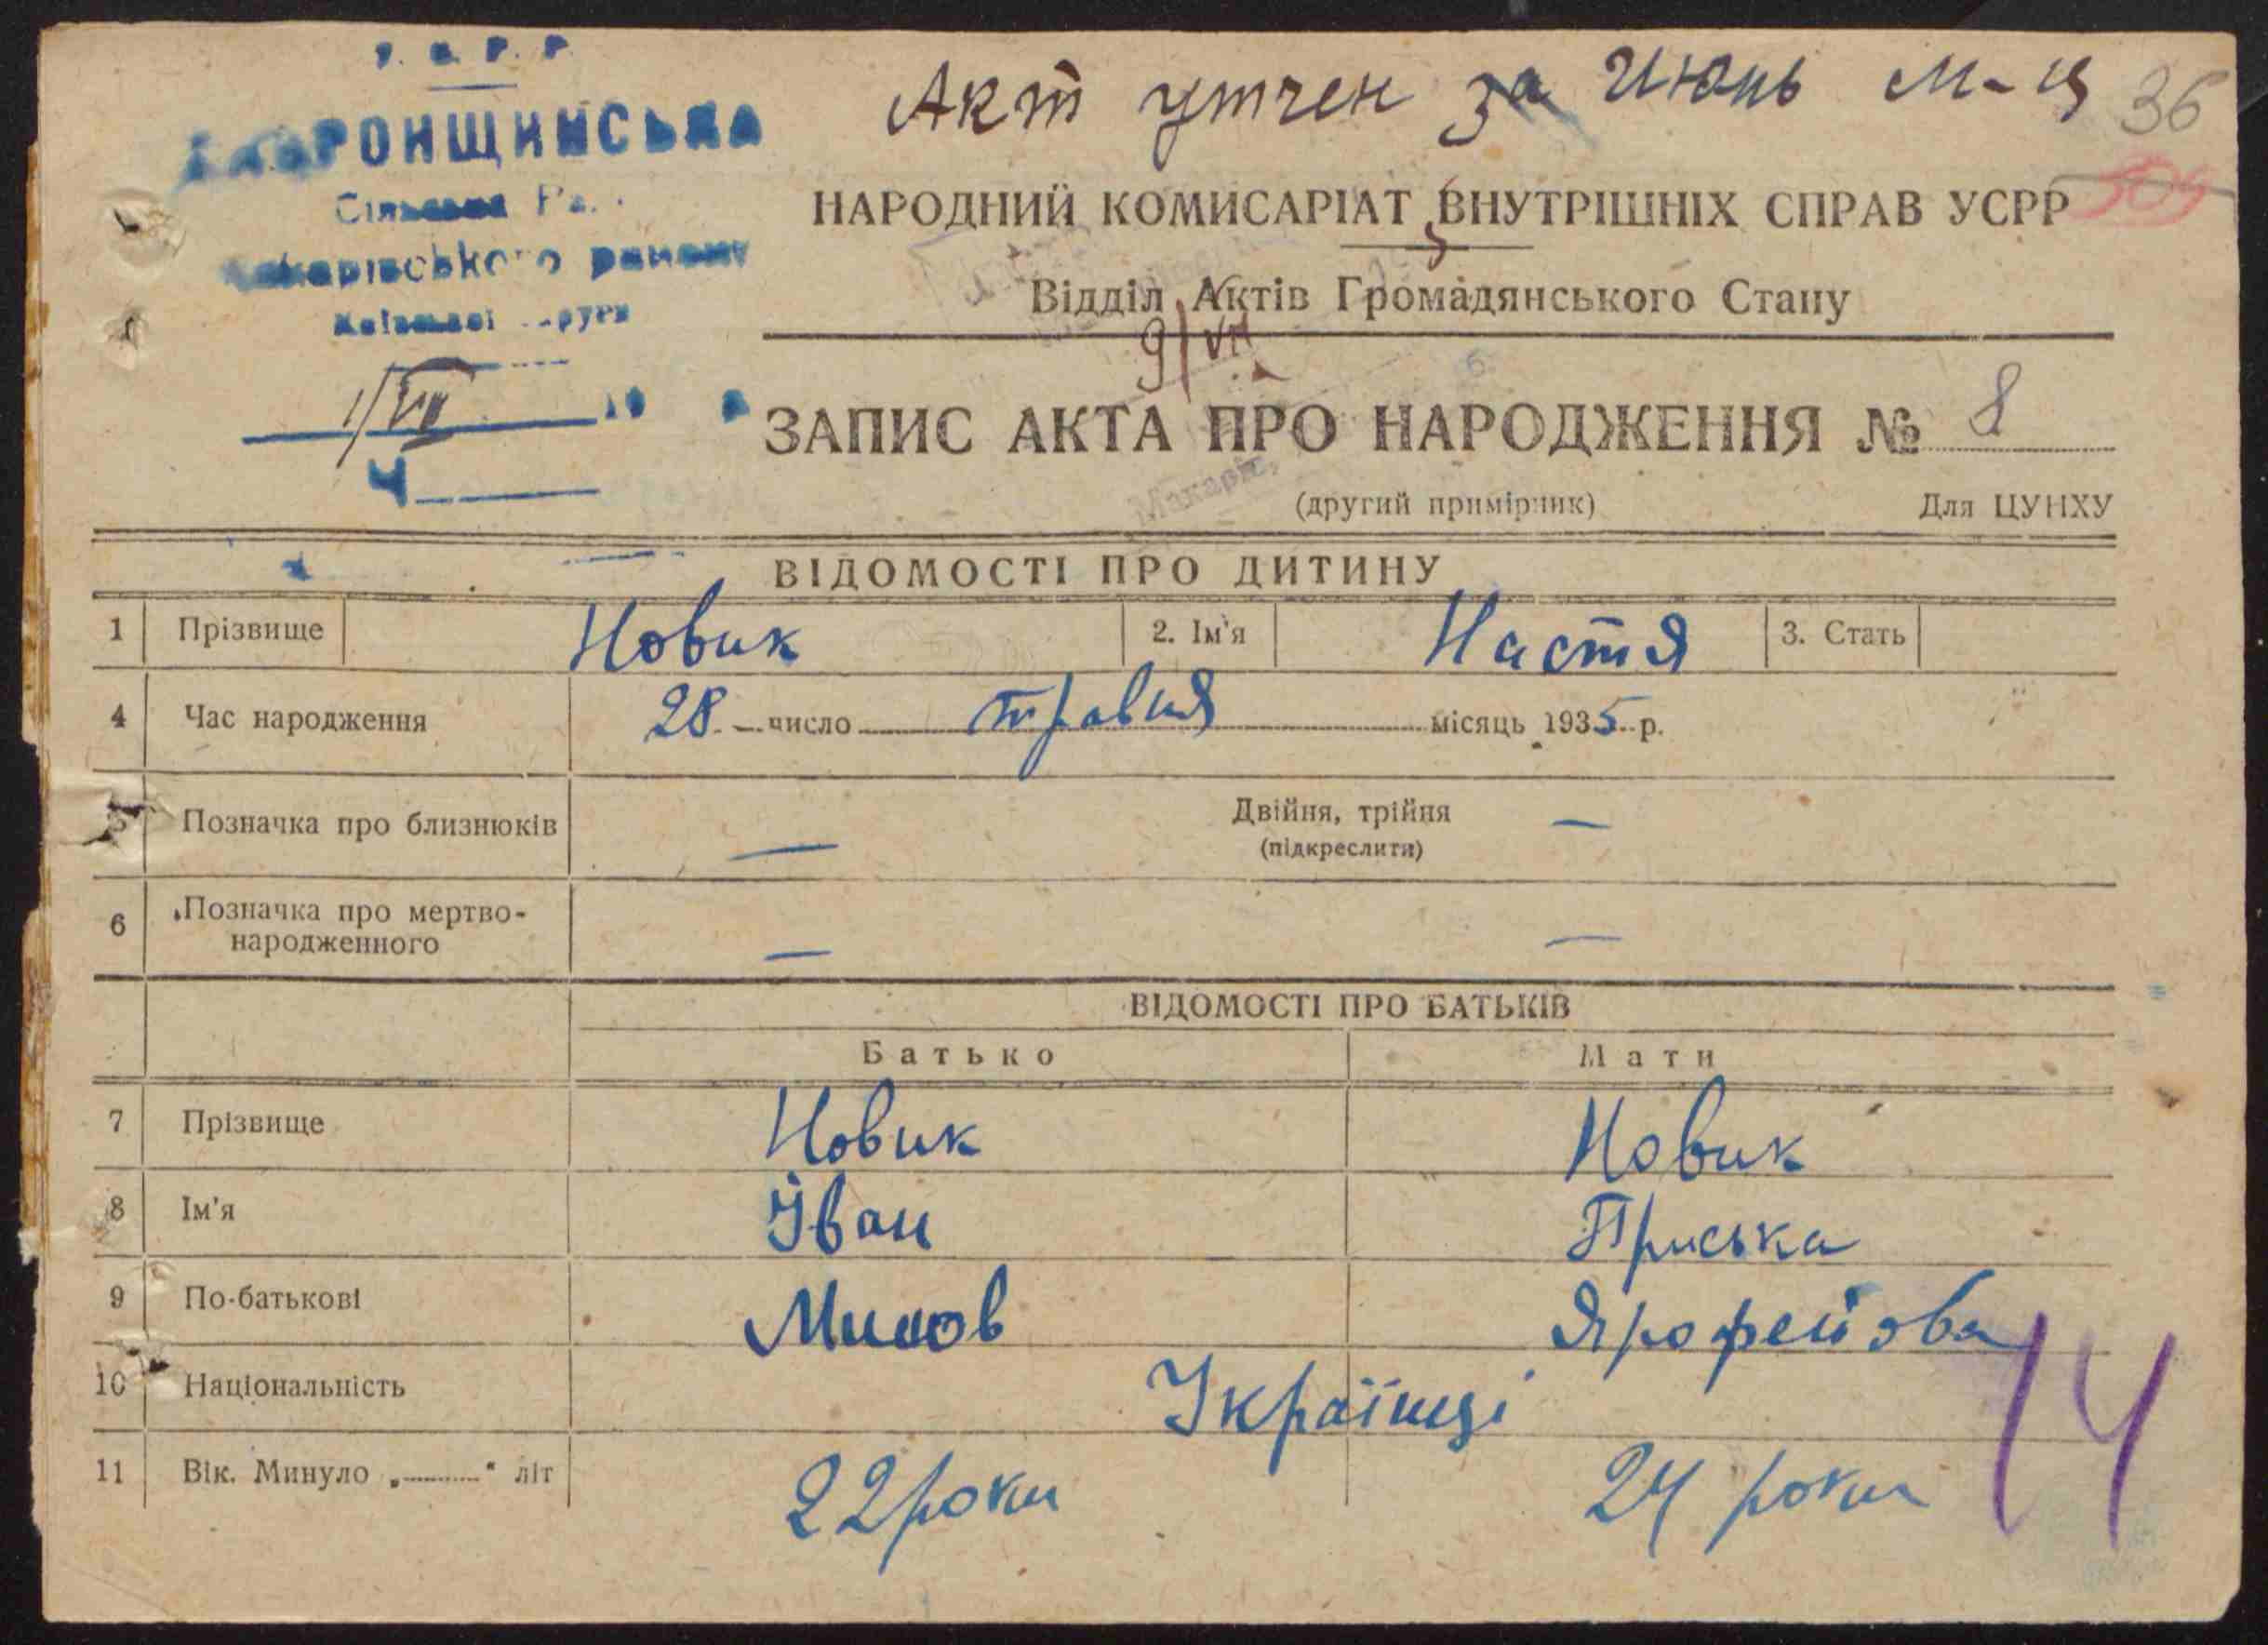 У. С. Р. Р.
Акт утчен за Июнь м-ц 36
ГАВРОНЩИНСЬКА
Сільська Ра
НАРОДНИЙ КОМИСАРІАТ ВНУТРІШНІХ СПРАВ УСРР
Макарівського району
Відділ Актів Громадянського Стану
Київської округи
9/VII
1/VII 19
ЗАПИС АКТА ПРО НАРОДЖЕННЯ № 8
Ч
(другий примірник) Для ЦУНХУ
ВІДОМОСТІ ПРО ДИТИНУ
1 Прізвище Новик 2. Ім'я Настя 3. Стать
4 Час народження 28 число травня місяць 1935 р.
5 Позначка про близнюків — Двійня, трійня —
(підкреслити)
6 Позначка про мертво-
народженного — —
ВІДОМОСТІ ПРО БАТЬКІВ
Батько Мати
7 Прізвище Новик Новик
8 Ім'я Іван Приська
9 По-батькові Ярофейова
10 Національність Українці
11 Вік. Минуло „ “ літ 22 роки 24 роки
14